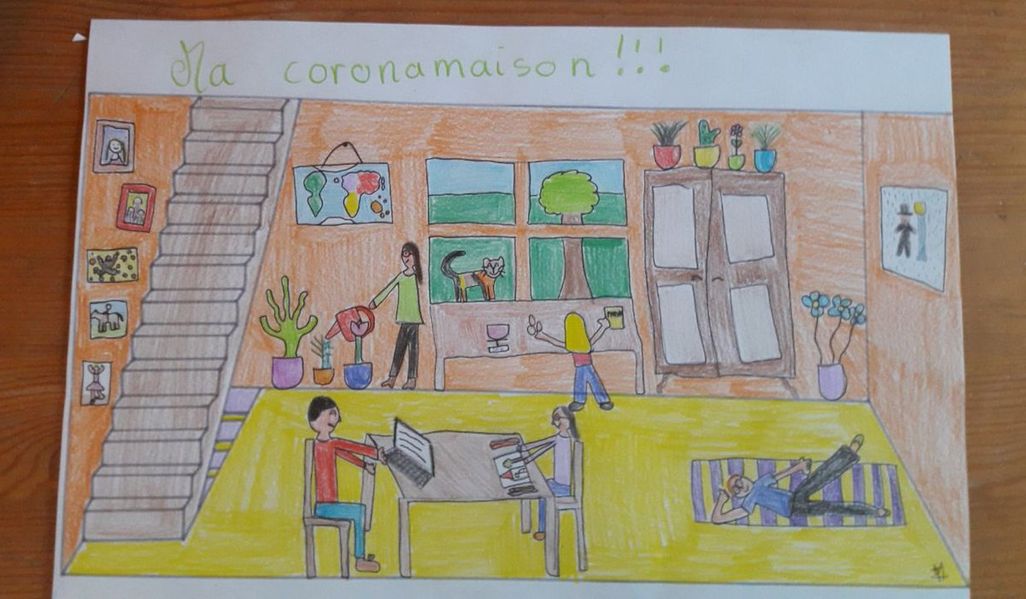 Ma coronamaison!!!